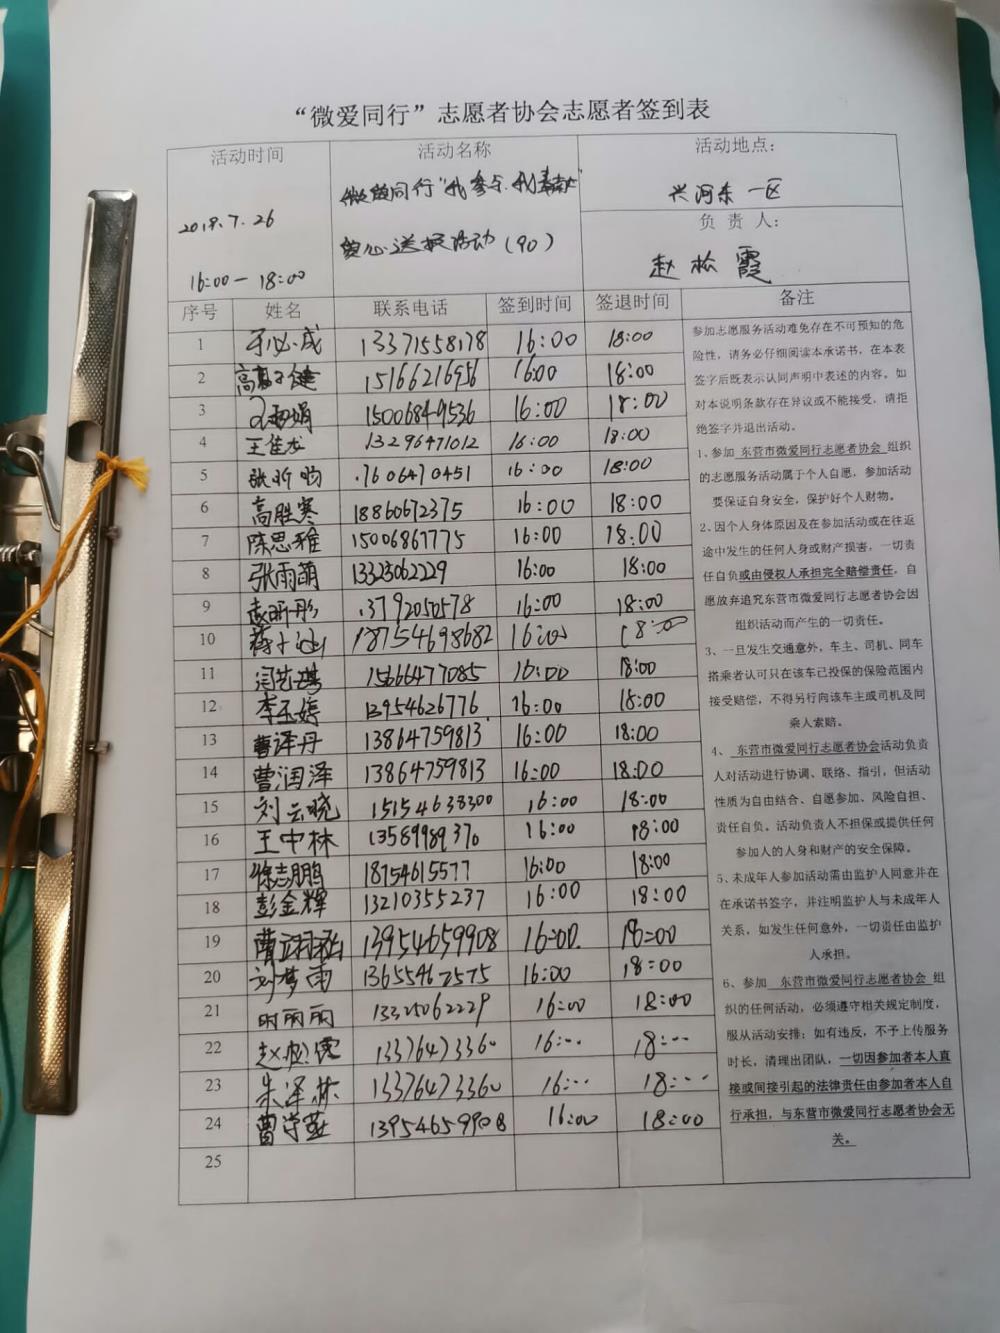 “微爱同行”志愿者协会志愿者签到表
活动时间
活动名称
活动地点：
微爱同行"我参与.我奉献"
兴河东一区
2019.7.26
负 责 人：
爱心送报活动（90）
赵松霞
16:00－18:00
序号 姓名 联系电话 签到时间 签退时间 备注
1 于必成 13371558178 16:00 18:00
2 高子健 15166216956 16:00 18:00
3 15006849536 16:00 18:00
4 王佳龙 13296471012 16:00 18:00
5 张昕昀 .7606470451 16:00 18:00
6 高胜寒 18860672375 16:00 18:00
7 陈思雅 15006867775 16:00 18:00
8 张雨萌 13323062229 16:00 18:00
9 赵昕彤 .3792050578 16:00 18:00
10 18754698682 16:00 18:00
11 闫艺琪 15666477085 16:00 18:00
12 李玉婷 13954626776 16:00 18:00
13 曹译丹 13864759813 16:00 18:00
14 曹润泽 13864759813 16:00 18:00
15 刘云晓 15154638300 16:00 18:00
16 王中林 13589989370 16:00 18:00
17 徐志鹏 18754615577 16:00 18:00
18 彭金辉 13210355237 16:00 18:00
19 曹 13954659908 16:00. 18:00
20 刘梦雨 13655462575 16:00 18:00
21 时丽丽 13325062229 16:00 18:00
22 赵 13376473360 16:·· 18:··
23 朱泽林 13376473360 16:·· 18:··
24 曹 13954659908 16:00 18:00
25
参加志愿服务活动难免存在不可预知的危
险性，请务必仔细阅读本承诺书，在本表
签字后既表示认同声明中表述的内容。如
对本说明条款存在异议或不能接受，请拒
绝签字并退出活动。
1、参加 东营市微爱同行志愿者协会 组织
的志愿服务活动属于个人自愿，参加活动
要保证自身安全，保护好个人财物。
2、因个人身体原因及在参加活动或在往返
途中发生的任何人身或财产损害，一切责
任自负或由侵权人承担完全赔偿责任，自
愿放弃追究东营市微爱同行志愿者协会因
组织活动而产生的一切责任。
3、一旦发生交通意外，车主、司机、同车
搭乘者认可只在该车已投保的保险范围内
接受赔偿，不得另行向该车主或司机及同
乘人索赔。
4、 东营市微爱同行志愿者协会活动负责
人对活动进行协调、联络、指引，但活动
性质为自由结合、自愿参加、风险自担、
责任自负。活动负责人不担保或提供任何
参加人的人身和财产的安全保障。
5、未成年人参加活动需由监护人同意并在
在承诺书签字，并注明监护人与未成年人
关系，如发生任何意外，一切责任由监护
人承担。
6、参加 东营市微爱同行志愿者协会 组
织的任何活动，必须遵守相关规定制度，
服从活动安排；如有违反，不予上传服务
时长，清理出团队，一切因参加者本人直
接或间接引起的法律责任由参加者本人自
行承担，与东营市微爱同行志愿者协会无
关。